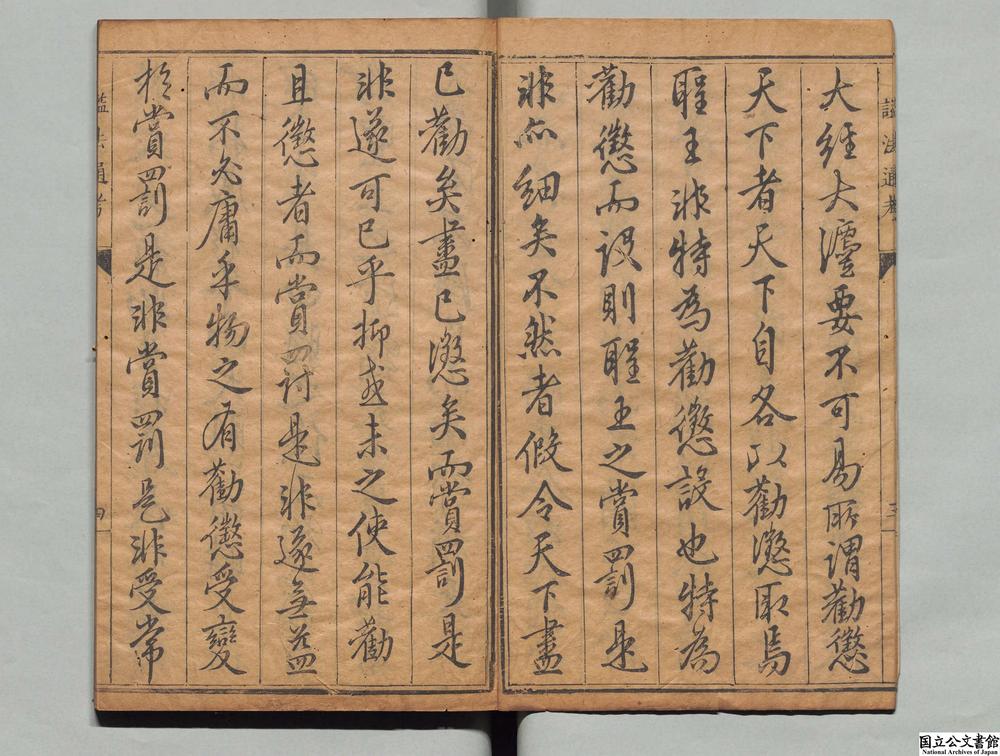 諡法通考
三
大經大濩要不可易所謂勸懲
天下者天下自各以勸懲取焉
聖王非特為勸懲設也特為
勸懲而設則聖王之賞罰是
非亦細矣不然者假令天下盡
已勸矣盡已懲矣而賞罰是
非遂可已乎抑或未之使能勸
且懲者而賞罰是非遂無益
而不必庸乎物之有勸懲受變
於賞罰是非賞罰是非受常
諡法通考
四
国立公文書館
National Archives of Japan